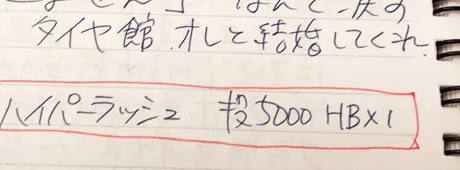 タイヤ館.オレと結婚してくれ.
ハイパーラッシュ 投5000 HB×1